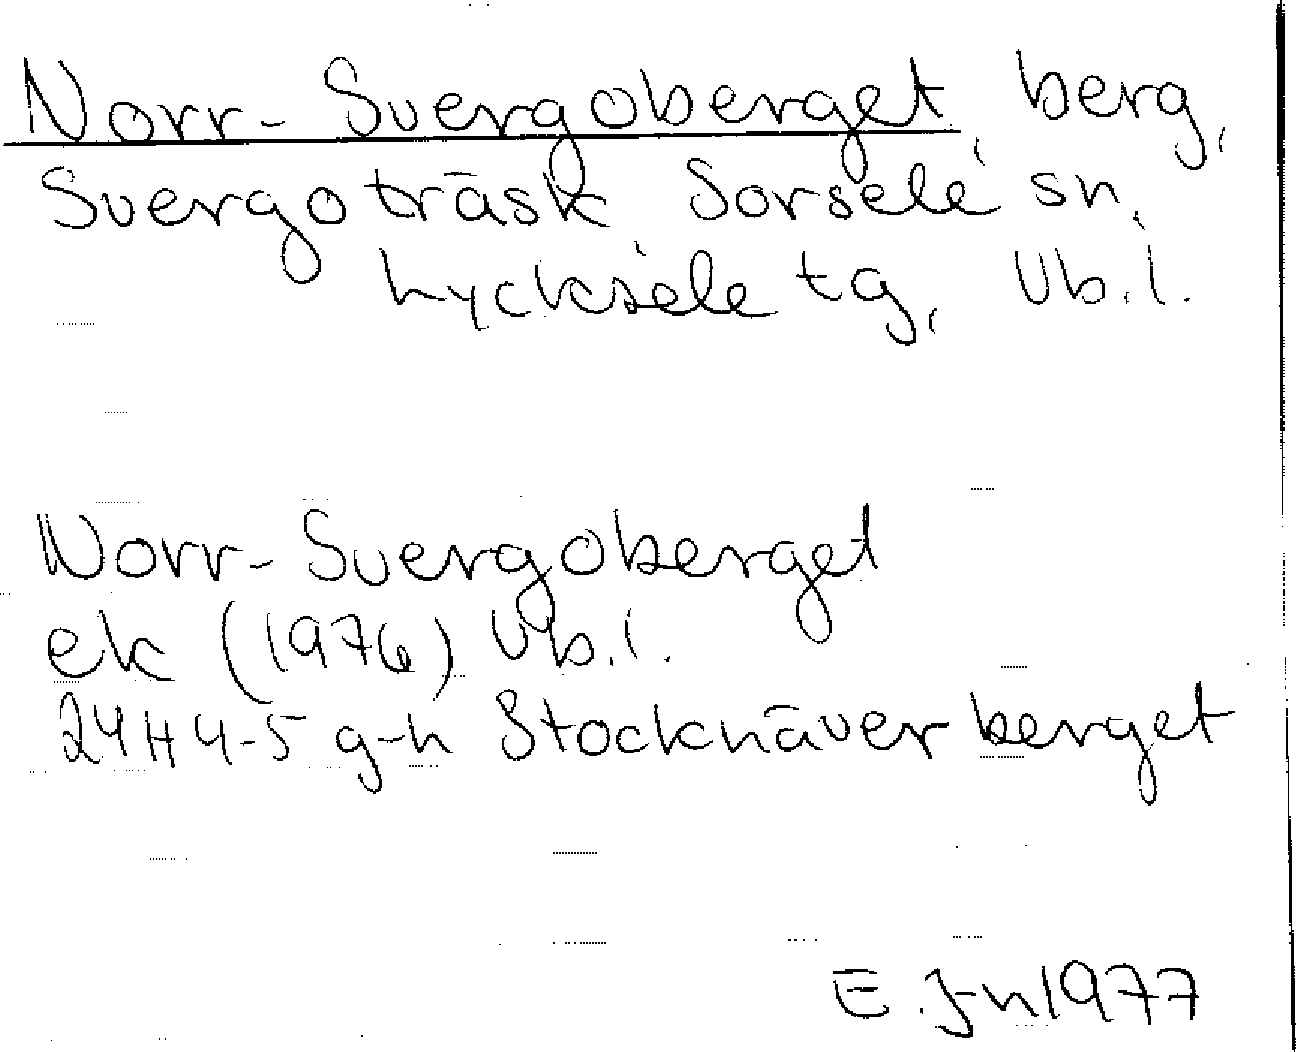 Norr-Svergoberget, berg,
Svergoträsk Sorsele sn,
Lycksele tg, Vb.l.
Norr-Svergoberget
ek (1976) Vb.l.
24H 4-5 g-h Stocknäverberget
E. J-n 1977